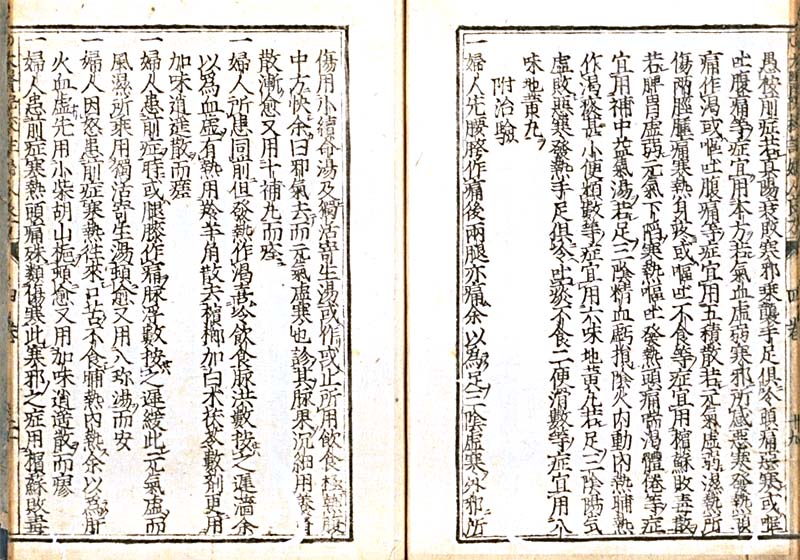 愚按前症若真陽衰敗寒邪乘襲手足俱冷頭痛惡寒或嘔
吐腹痛等症宜用本方若氣血虛弱寒邪所感惡寒發熱頭
痛作渴或嘔吐腹痛等症宜用五積散若元氣虛弱濕熱所
傷兩脛腫痛寒熱身疼或嘔吐不食等症宜用檳蘇敗毒散
若脾胃虛弱元氣下陷寒熱嘔吐發熱頭痛喘渴體倦等症
宜用補中益氣湯若足三陰精血虧損陰火內動內熱晡熱
作渴痰甚小便頻數等症宜用六味地黃丸若足三陰陽氣
虛敗惡寒發熱手足俱冷吐痰不食二便滑數等症宜用八
味地黃丸
附治驗
一婦人先腰胯作痛後兩腿亦痛余以為足三陰虛寒外邪所
傷用小續命湯及獨活寄生湯或作或止所用飲食極熱腹
中方快余曰邪氣去而元氣虛寒也診其脉果沉細用養腎
散漸愈又用十補丸而痊
一婦人所患同前但發熱作渴喜冷飲食脉洪數按之遲濇余
以為血虛有熱用羚羊角散去檳榔加白术茯苓數劑更用
加味逍遙散而痊
一婦人患前症或腿膝作痛脉浮數按之遲緩此元氣虛而
風濕所乘用獨活寄生湯頓愈又用八珎湯而安
一婦人因怒患前症寒熱往來口苦不食晡熱內熱余以為肝
火血虛先用小柴胡山梔頓愈又用加味逍遙散而瘳
一婦人患前症寒熱頭痛殊類傷寒此寒邪之症用檳蘇敗毒
四卷